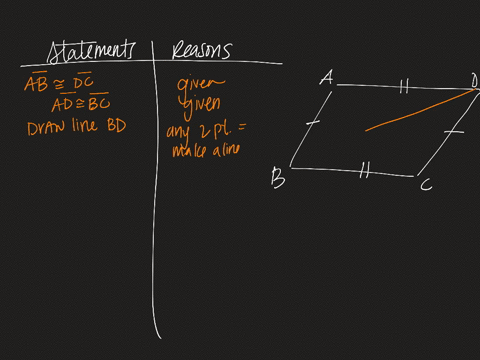 Statements Reasons
AB ≅ DC given
AD ≅ BC given
DRAW line BD any 2 pt. =
make a line
A
D
B
C